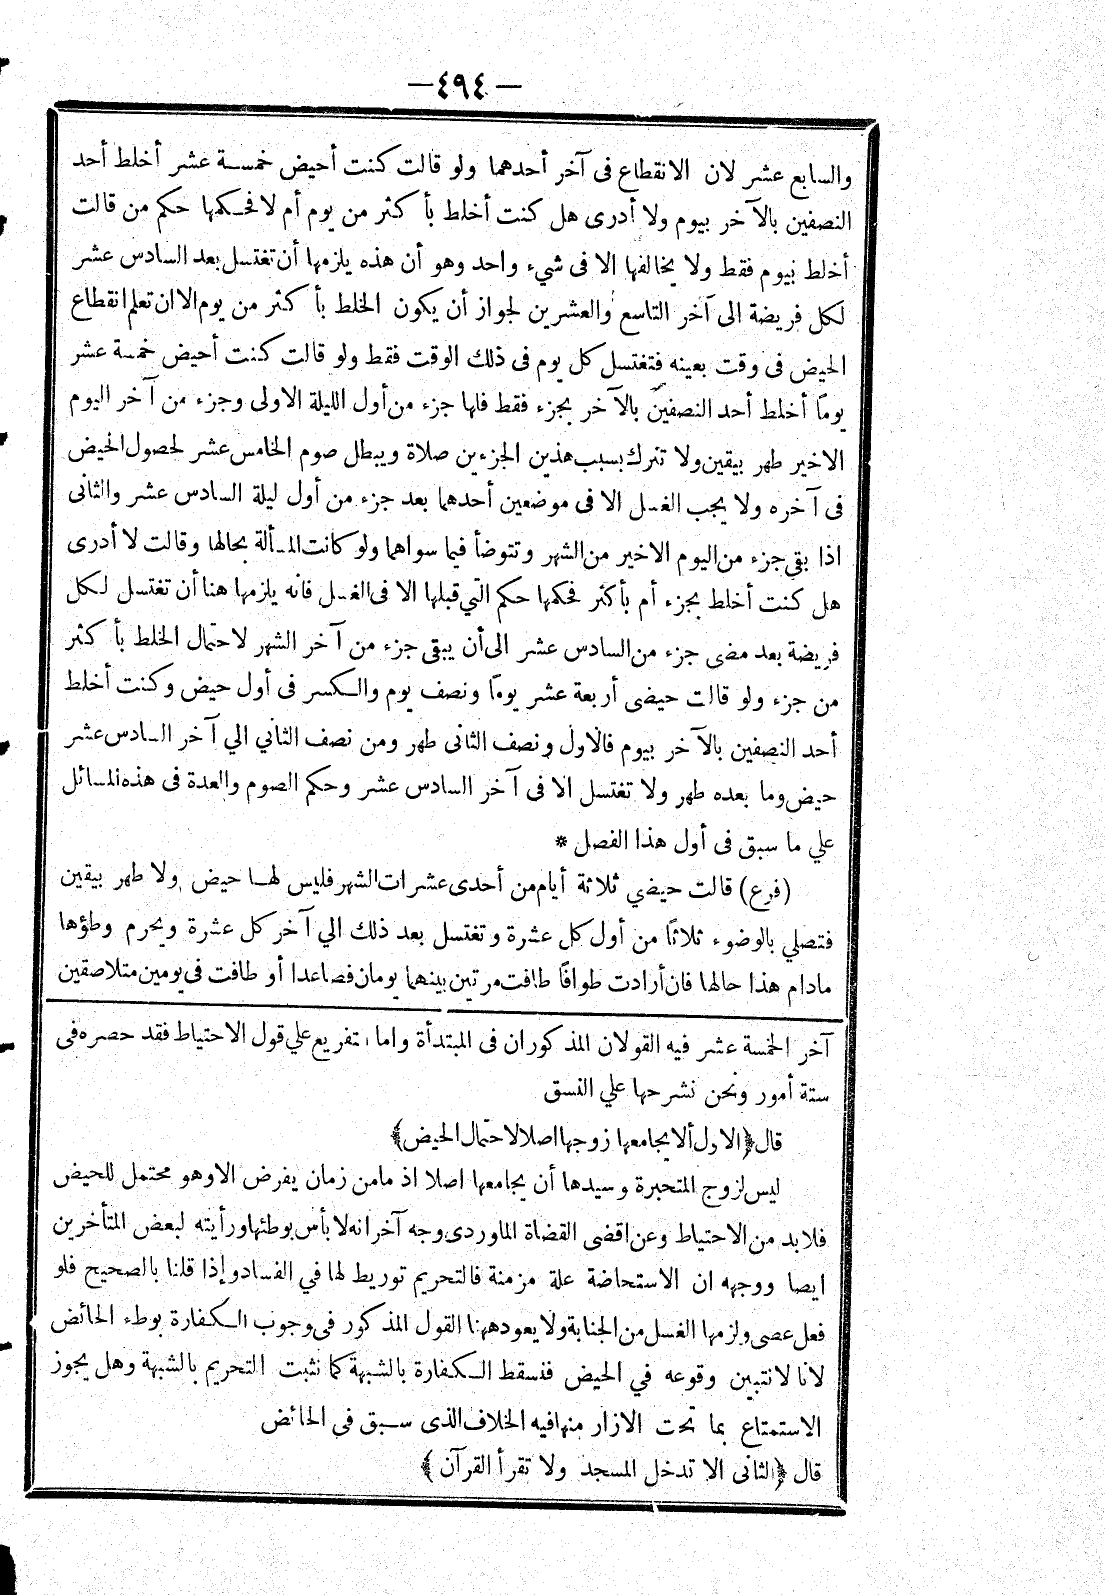 —٤٩٤—
والسابع عشر لان الانقطاع فى آخر أحدهما ولو قالت كنت أحيض خمسة عشر أخلط أحد
النصفين بالآخر بيوم ولا أدرى هل كنت أخلط بأكثر من يوم أم لا فحكمها حكم من قالت
أخلط بيوم فقط ولا يخالفها الا فى شيء واحد وهو أن هذه يلزمها أن تغتسل بعد السادس عشر
لكل فريضة الى آخر التاسع والعشرين لجواز أن يكون الخلط بأكثر من يوم الا ان تعلم انقطاع
الحيض فى وقت بعينه فتغتسل كل يوم فى ذلك الوقت فقط ولو قالت كنت أحيض خمسة عشر
يوماً أخلط أحد النصفين بالآخر بجزء فقط فلها جزء من أول الليلة الاولى وجزء من آخر اليوم
الاخير طهر بيقين ولا تترك بسبب هذين الجزءين صلاة ويبطل صوم الخامس عشر لحصول الحيض
فى آخره ولا يجب الغسل الا فى موضعين أحدهما بعد جزء من أول ليلة السادس عشر والثانى
اذا بقى جزء من اليوم الاخير من الشهر وتتوضأ فيما سواهما ولو كانت المسألة بحالها وقالت لا أدرى
هل كنت أخلط بجزء أم بأكثر فحكمها حكم التي قبلها الا فى الغسل فانه يلزمها هنا أن تغتسل لكل
فريضة بعد مضى جزء من السادس عشر الى أن يبقى جزء من آخر الشهر لاحتمال الخلط بأكثر
من جزء ولو قالت حيضى أربعة عشر يوماً ونصف يوم والكسر فى أول حيض وكنت أخلط
أحد النصفين بالآخر بيوم فالاول ونصف الثانى طهر ومن نصف الثاني الي آخر السادس عشر
حيض وما بعده طهر ولا تغتسل الا فى آخر السادس عشر وحكم الصوم والعدة فى هذه المسائل
علي ما سبق فى أول هذا الفصل *
(فرع) قالت حيضي ثلاثة أيام من أحدى عشرات الشهر فليس لها حيض ولا طهر بيقين
فتصلي بالوضوء ثلاثاً من أول كل عشرة وتغتسل بعد ذلك الي آخر كل عشرة ويحرم وطؤها
مادام هذا حالها فان أرادت طوافاً طافت مرتين بينهما يومان فصاعدا أو طافت في يومين متلاصقين
آخر الخمسة عشر فيه القولان المذكوران فى المبتدأة واما التفريع علي قول الاحتياط فقد حصره فى
ستة أمور ونحن نشرحها علي النسق
قال ﴿الاول ألا يجامعها زوجها اصلا لاحتمال الحيض﴾
ليس لزوج المتحيرة وسيدها أن يجامعها اصلا اذ مامن زمان يفرض الاوهو محتمل للحيض
فلابد من الاحتياط وعن اقضى القضاة الماوردى وجه آخر انه لا بأس بوطئها ورأيته لبعض المتأخرين
ايضا ووجهه ان الاستحاضة علة مزمنة فالتحريم توريط لها في الفساد وإذا قلنا بالصحيح فلو
فعل عصى ولزمها الغسل من الجنابة ولا يعود ههنا القول المذكور فى وجوب الكفارة بوطء الحائض
لانا لا نتبين وقوعه في الحيض فنسقط الكفارة بالشبهة كما نثبت التحريم بالشبهة وهل يجوز
الاستمتاع بما تحت الازار منها فيه الخلاف الذى سبق في الحائض
قال ﴿الثانى الا تدخل المسجد ولا تقرأ القرآن﴾